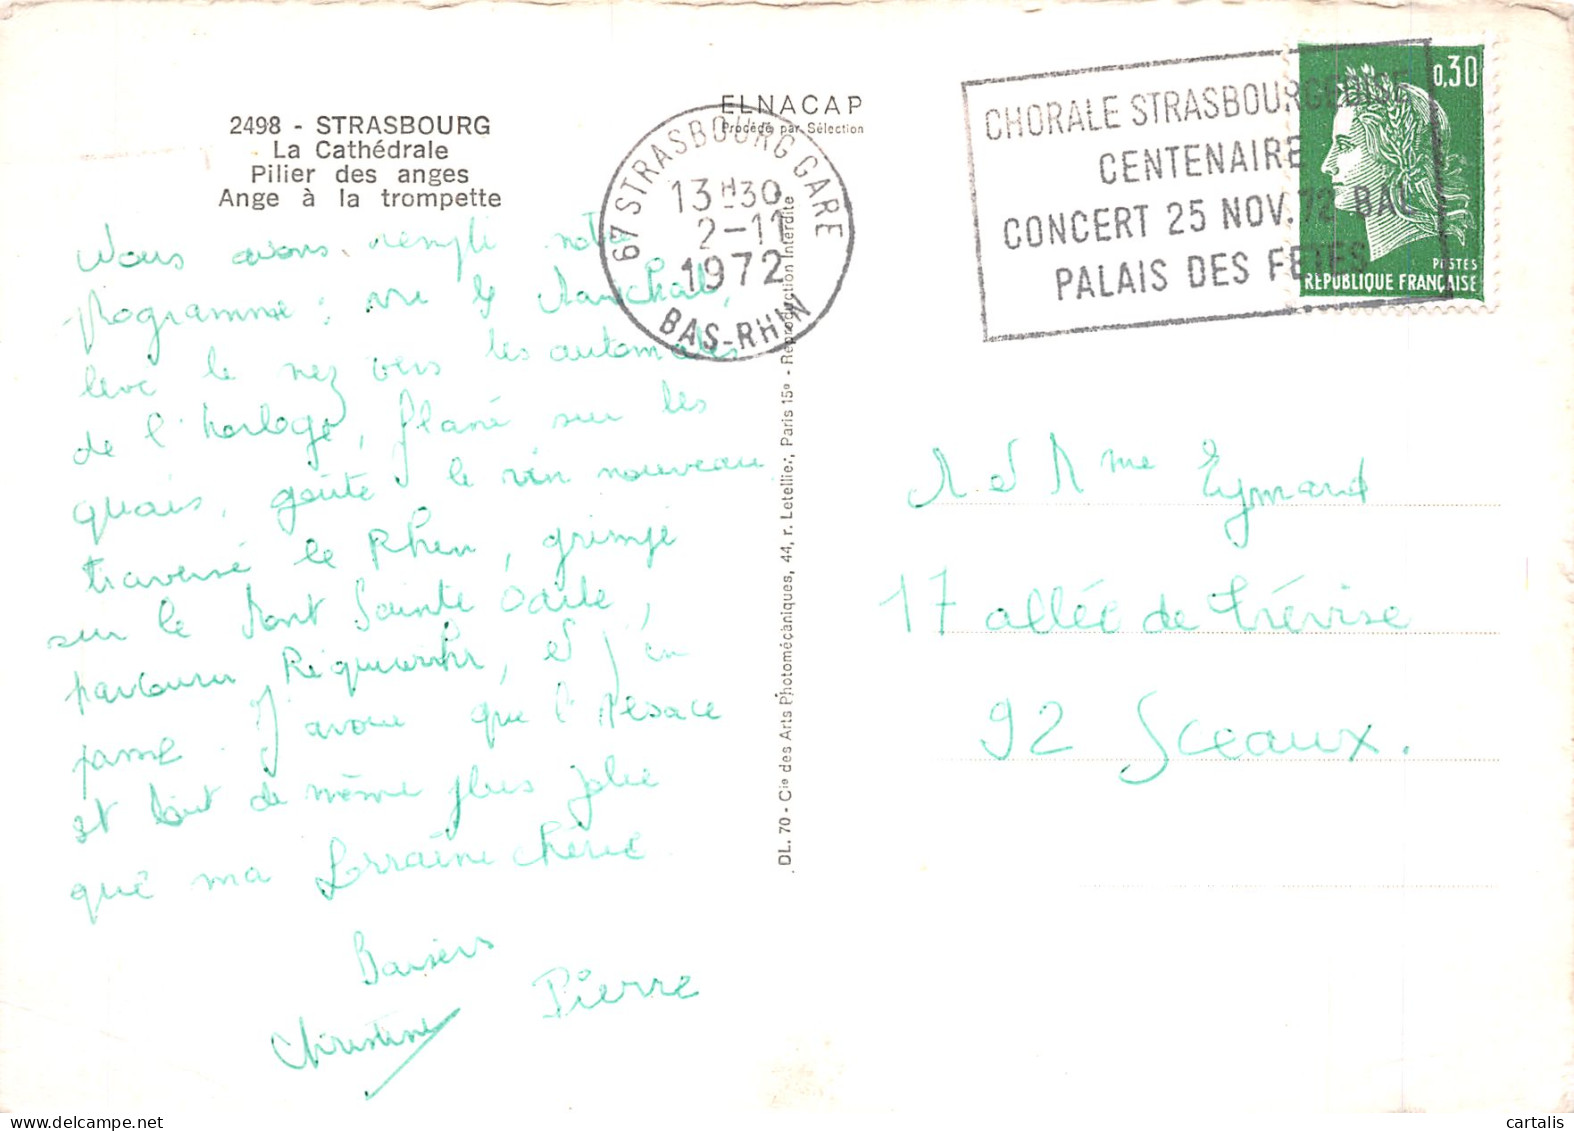 2498 - STRASBOURG
La Cathédrale
Pilier des anges
Ange à la trompette
ELNACAP
Procédé par Sélection
67 STRASBOURG GARE
13H30
2-11
1972
BAS-RHIN
CHORALE STRASBOURGEOISE
CENTENAIRE
CONCERT 25 NOV. 72 BAL
PALAIS DES FETES
0,30
POSTES
REPUBLIQUE FRANÇAISE
Nous avons rempli notre
programme : vu le
levé le nez vers les automates
de l'horloge, flané sur les
quais, goûté le vin nouveau
traversé le Rhin, grimpé
sur le Mont Sainte Odile,
parcouru Riquewihr, et j'en
passe. J'avoue que l'Alsace
est tout de même plus jolie
que ma Lorraine chérie
Baisers
Christine Pierre
DL. 70 - Cie des Arts Photomécaniques, 44, r. Letellier, Paris 15e - Reproduction Interdite
M et Mme Eymard
17 allée de Trévise
92 Sceaux.
cartalis